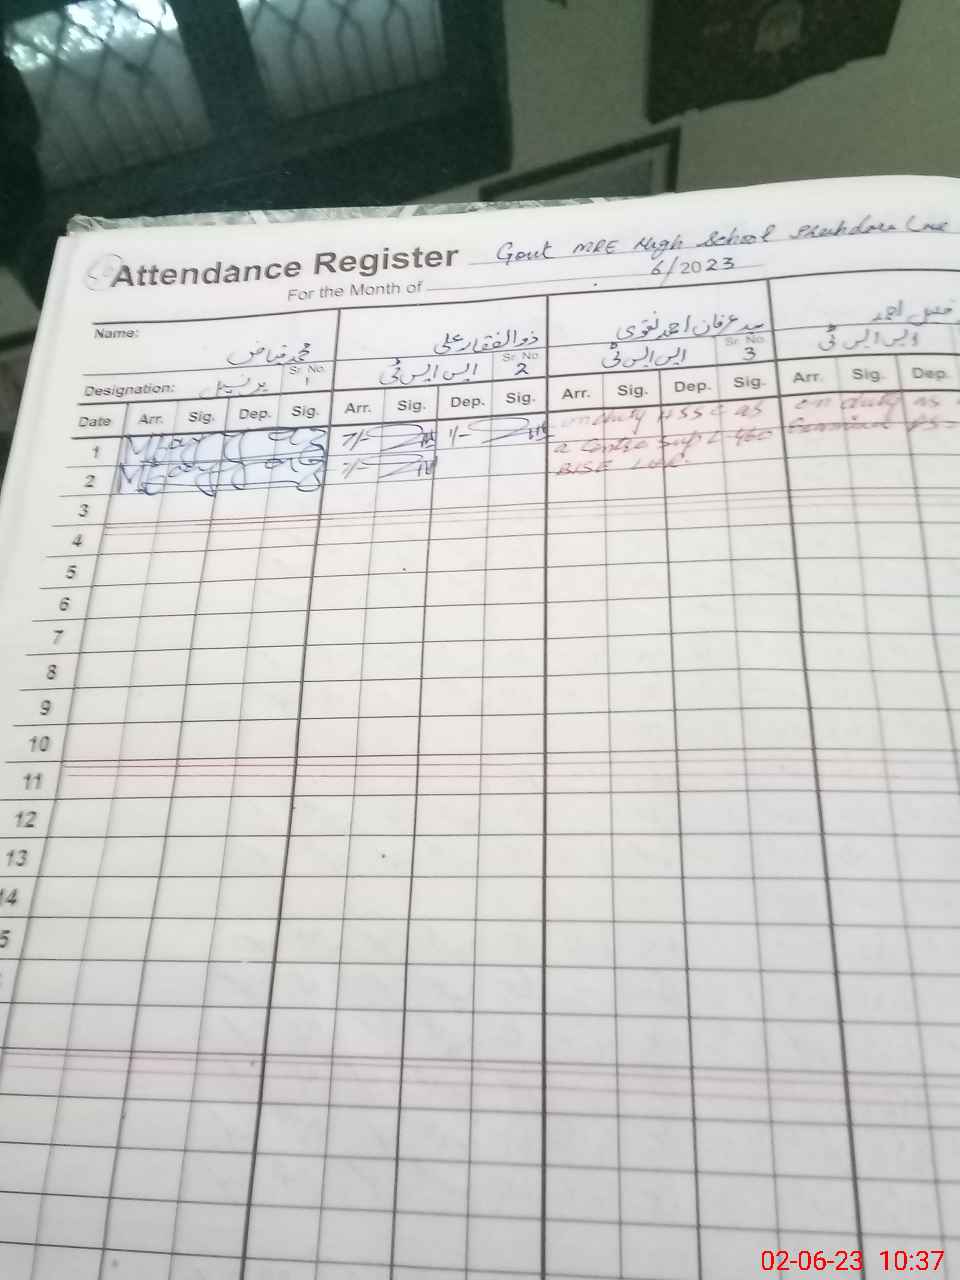 Attendance Register Govt MPE High School Shahdara Lhr
For the Month of 6/2023
Name: محمد فیاض ذوالفقار علی سید عرفان احمد نقوی احمد
Sr. No. 1 Sr. No. 2 Sr. No. 3
Designation: پرنسپل ایس ایس ٹی ایس ایس ٹی ایس ایس ٹی
Date Arr. Sig. Dep. Sig. Arr. Sig. Dep. Sig. Arr. Sig. Dep. Sig. Arr. Sig. Dep.
1 7/- 1/- on duty HSSC as on duty as
2 7/- a Centre Supt 460
BISE Lhr.
3
4
5
6
7
8
9
10
11
12
13
14
5
02-06-23 10:37